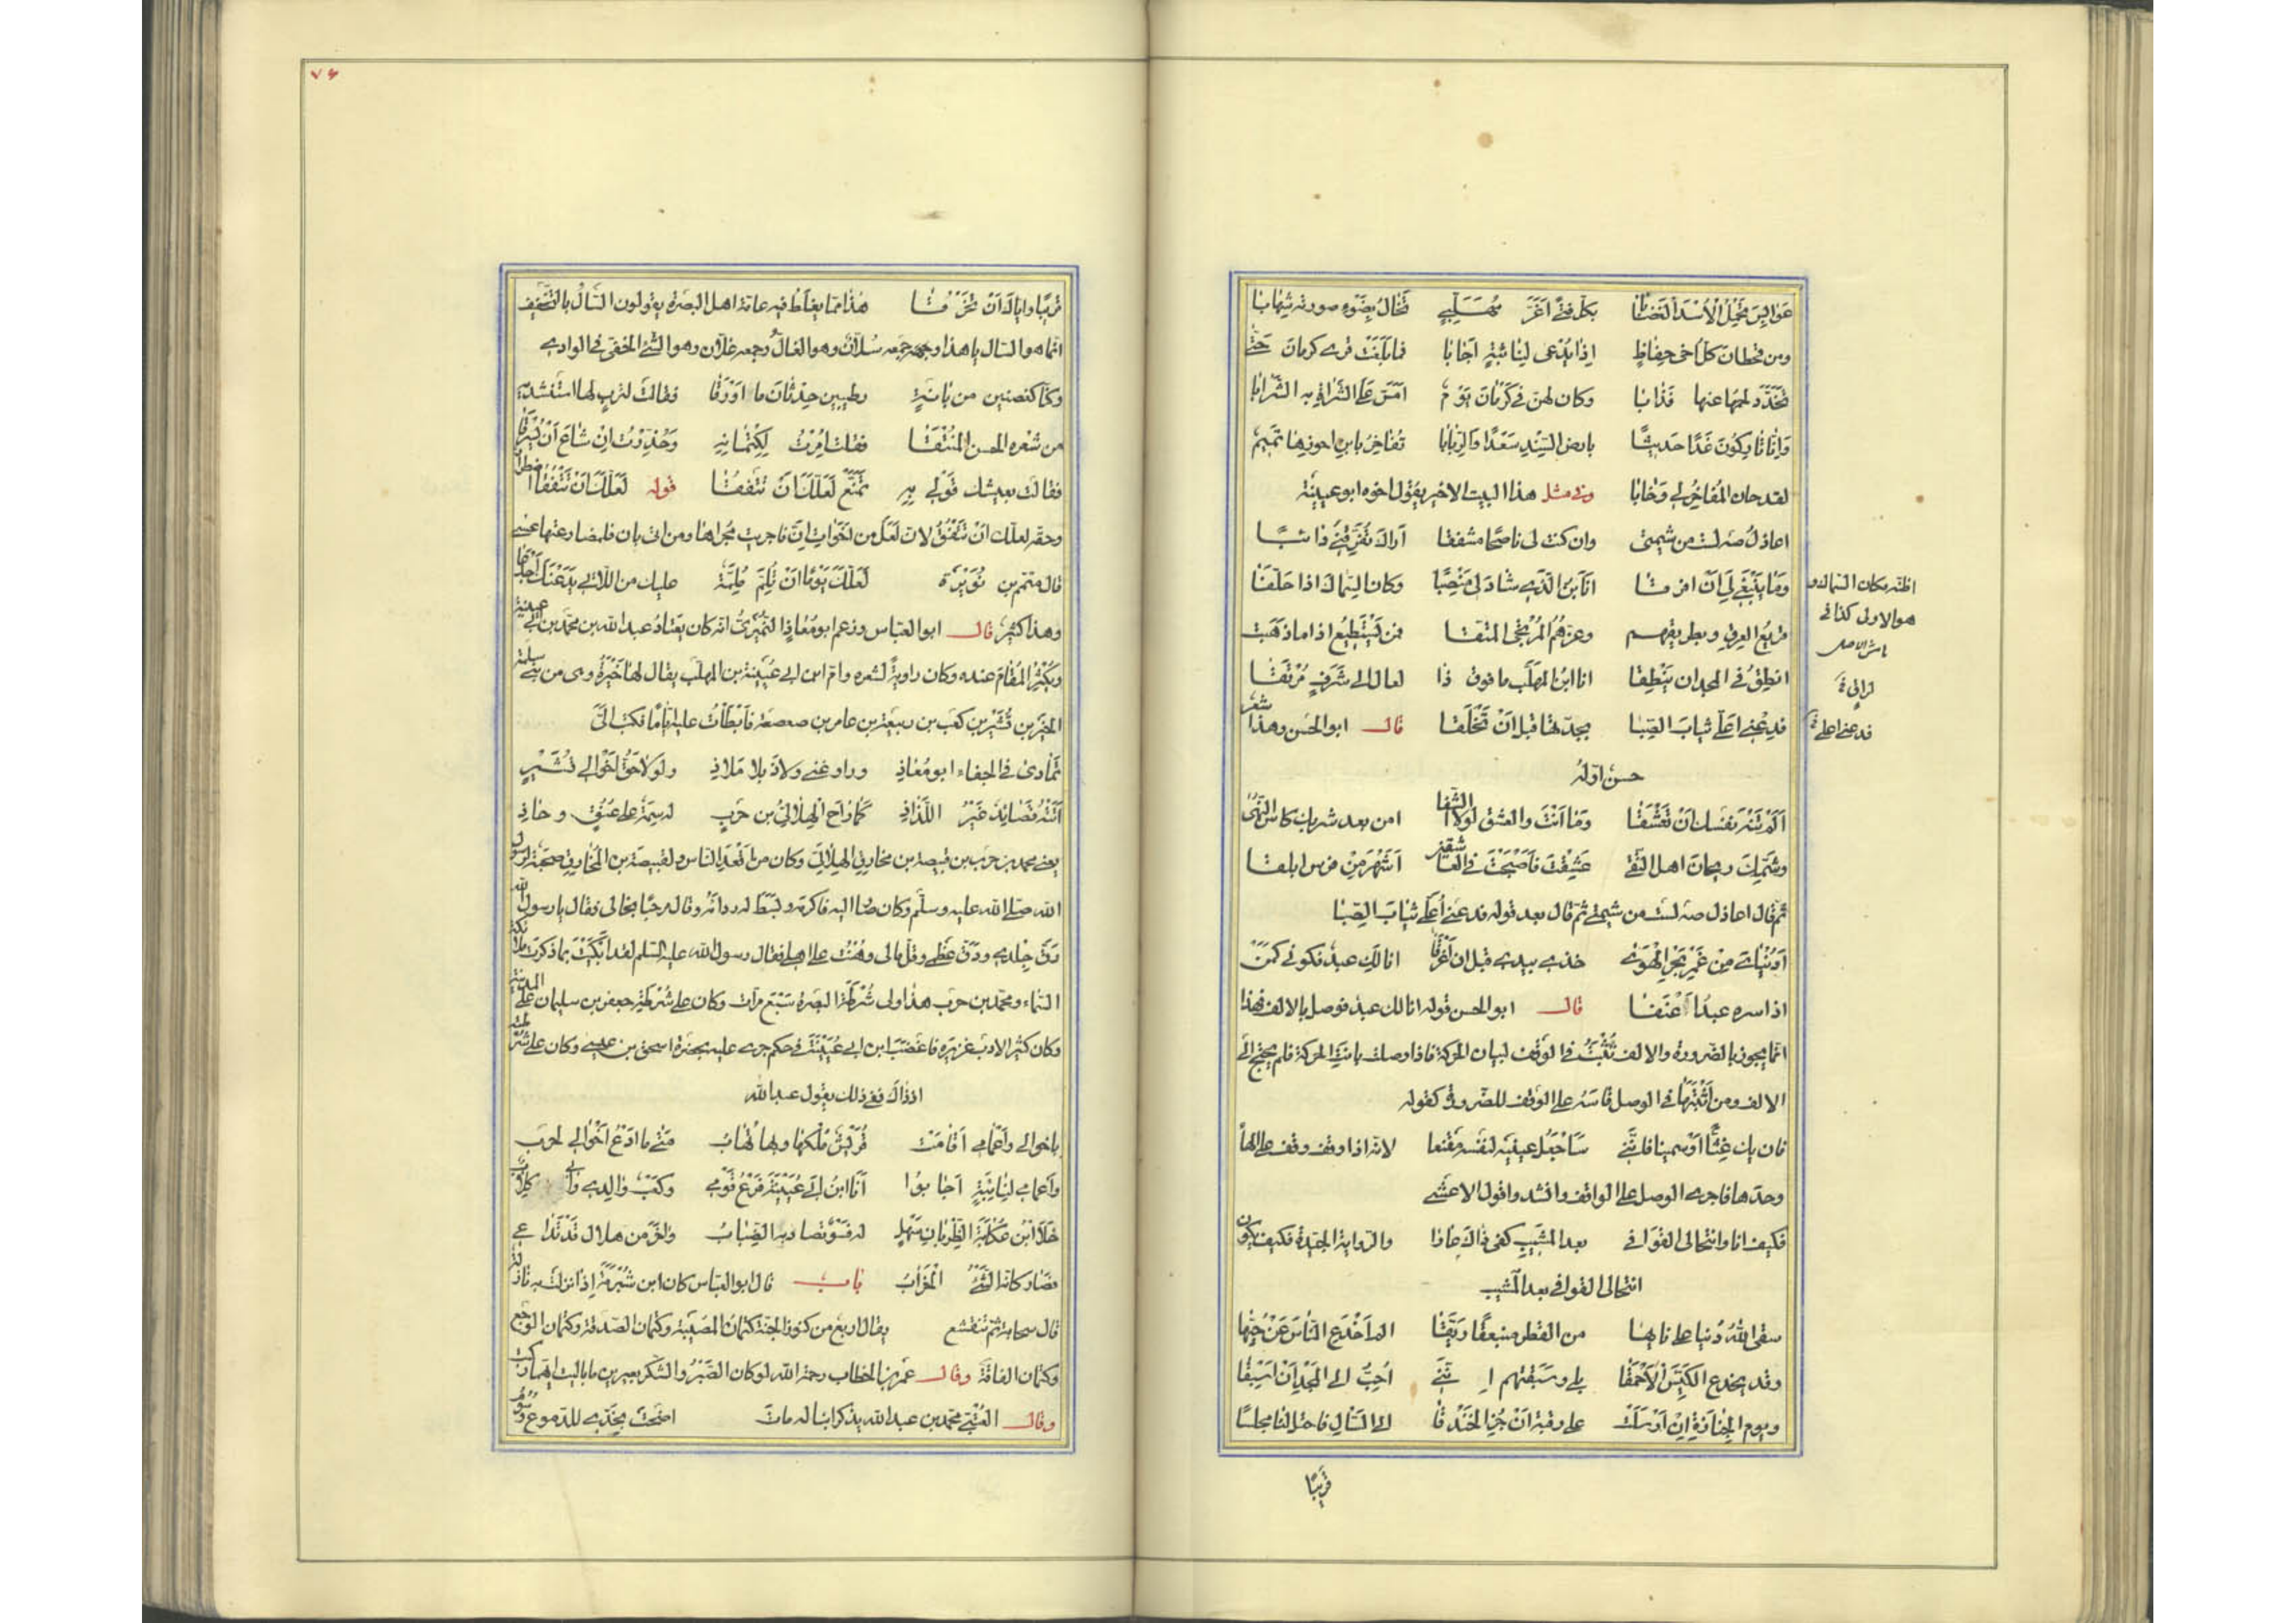 عوابس تحمل الأسد الغضابا بكل فتى أغرّ مهلّبيّ تخال بضوء صورته شهابا
ومن قحطان كل أخي حفاظ إذا يدعى لنائبة أجابا فما بلغت قرى كرمان حتى
تخدّد لحمها عنها فذابا وكان لهنّ في كرمان يوم أمرّ على الشراة به الشرابا
وإنا تاركون غدا حديثا بارض السند سعدا والربابا تفاخر بابن احوزها تميم
لقد حان المفاخر لي وخابا وفي مثل هذا البيت الاخير يقول اخوه ابو عيينة
اعاذل صه لست من شيمتي وان كنت لي ناصحا مشفقا أراك تفرّقني دائبا
وما ينبغي لي أن افرقا انا ابن الذي شاد لي منصبا وكان السماك اذا حلّقا
قريع العراق وبطريقهم وعزهم المرتجى المتقا فمن يستطيع اذا ما ذهبت
انطق في المجد ان ينطقا انا ابن المهلب ما فوق ذا لعال الى شرف مرتقا
فدعني اغلي ثياب الصبا بجدّتها قبل أن تخلقا قال ابو الحسن وهذا شعر
حسن اوله
ألم تنه نفسك ان تعشقا وما أنت والعشق لولا الشقا امن بعد شربك كاس النهى
وشمّك ريحان اهل التقى عشقت فأصبحت في العاشقين أشهر من فرس ابلقا
ثم قال اعاذل صه لست من شيمتي ثم قال بعد قوله فدعني أغلي ثياب الصبا
أدنياي من غمر بحر الهوى خذي بيدي قبل ان أغرقا انا لك عبد فكوني كمن
اذا سره عبده أعتقا قال ابو الحسن قوله انا لك عبد فوصل بالالف فهذا
انما يجوز بالضرورة والالف تثبت في الوقف لبيان الحركة فاذا وصلت بانت الحركة فلم يحتج الى
الالف ومن أثبتها في الوصل قاسه على الوقف للضرورة كقوله
فان يك غثّا أو سمينا فانني سأجعل عينيه لنفسه مقنعا لانه اذا وقف وقف على الهاء
وحدها فاجرى الوصل على الواقف وانشدوا قول الاعشى
فكيف انا وانتحالي القوافي بعد المشيب كفى ذاك عارا والرواية الجيدة فكيف يكون
انتحالي القوافي بعد المشيب
سقى الله دنيا على نايها من القطر منبعقا ريّقا الم اخدع الناس عن حبّها
وقد يخدع الكيّس الأحمقا بلى وسبقتهم انني أحب الى المجد أن اسبقا
ويوم الجنازة إن أرسلت على رقبة أن جز الخندقا الى السّال فاختر لنا مجلسا
قريبا
اظنه مكان السماك و
هو الاولى كذا في
هامش الاصل
فدعني اغلي
٧٤
قريبا واياك أن تخرقا هذا مما يغلط فيه عامة اهل البصرة يقولون السّال بالتخفيف
انما هو السّال يا هذا وجمعه سُلّان وهو الغالّ وجمعه غلّان وهو الشئ الخفي في الوادي
وكنّا كغصنين من بانة رطيبين حدثان ما أورقا فقالت لترب لها استنشديه
من شعره الحسن المنتقا فقلت أمرت بكتمانه وحذّرت ان شاع أن يسرقا
فقالت بعيشك قولي له تمتّع لعلّك أن تنفقا قوله لعلّك أن تنفقا اضطرار
وحقه لعلك أن تنفق لان لعل من اخوات إنّ فاجريت مجراها ومن اتى بان فلمضارعتها عسى
قال متمم بن نويرة لعلّك يوما أن تلمّ ملمّة عليك من اللائي يدعنك أجدعا
وهذا كثير قال ابو العباس وزعم ابو معاذ النميري انه كان يعتاد عبد الله بن محمد بن ابي عيينة
ويكثر المقام عنده وكان راوية لشعره وام ابن ابي عيينة بن المهلب يقال لها خيرة وهي من بني سلمة
الخير بن قشير بن كعب بن ربيعة بن عامر بن صعصعة فأبطأت عليه أياما فكتب اليّ
تمادى في الجفاء ابو معاذ وراوغني ولاذ بلا ملاذ ولولا حق أخوالي قشير
أتته قصائد غير اللذاذ كما راح الهلاليّ بن حرب له سمة على عنق وحاذ
يعني محمد بن حرب بن قبيصة بن مخارق الهلالي وكان من أقعد الناس ولقبيصة بن المخارق صحبة لرسول
الله صلى الله عليه وسلم وكان صار اليه فاكرمه وبسط له رداءه وقال مرحبا بخالي فقال يا رسول الله
رقّ جلدي ودقّ عظمي وقلّ مالي وهنت على اهلي فقال رسول الله عليه السلم لقد ابكيت بما ذكرت ملائكة
السماء ومحمد بن حرب هذا ولي شرطة البصرة سبع مرات وكان على شرطة جعفر بن سليمان على المدينة
وكان كثير الادب غزيره فاغضب ابن ابي عيينة في حكم جرى عليه بحضرة اسحق بن عيسى وكان على شرطته
اذ ذاك ففي ذلك يقول عبد الله
باخوالي وأعمامي أقامت قريش ملكها وبها تهاب متى ما أدع أخوالي لحرب
وأعمامي لنائبة أجابوا أنا ابن ابي عيينة فرع قومي وكعب والدي وابي كلاب
خلا ابن عكابة الظربان سهل له فسو تصاد به الضباب وآخر من هلال قد تداعى
فصار كانه الشئ الخراب باب قال ابو العباس كان ابن شبرمة إذا نزلت به نازلة
قال سحابة ثم تنقشع يقال اربع من كنوز الجنة كتمان المصيبة وكتمان الصدقة وكتمان الوجع
وكتمان الفاقة وقال عمر بن الخطاب رحمه الله لو كان الصبر والشكر بعيرين ما باليت ايهما ركبت
وقال العتبي محمد بن عبد الله يذكر ابنا له مات اضحت بخدّي للدموع رسوم